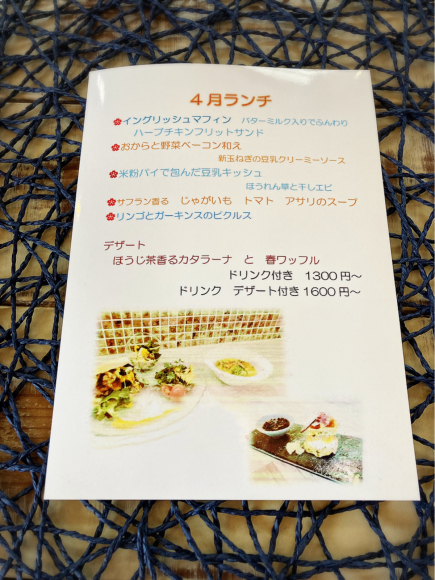 4月ランチ
イングリッシュマフィン バターミルク入りでふんわり
ハーブチキンフリットサンド
おからと野菜ベーコン和え
新玉ねぎの豆乳クリーミーソース
米粉パイで包んだ豆乳キッシュ
ほうれん草と干しエビ
サフラン香る じゃがいも トマト アサリのスープ
リンゴとガーキンスのピクルス
デザート
ほうじ茶香るカタラーナ と 春ワッフル
ドリンク付き 1300円~
ドリンク デザート付き1600円~